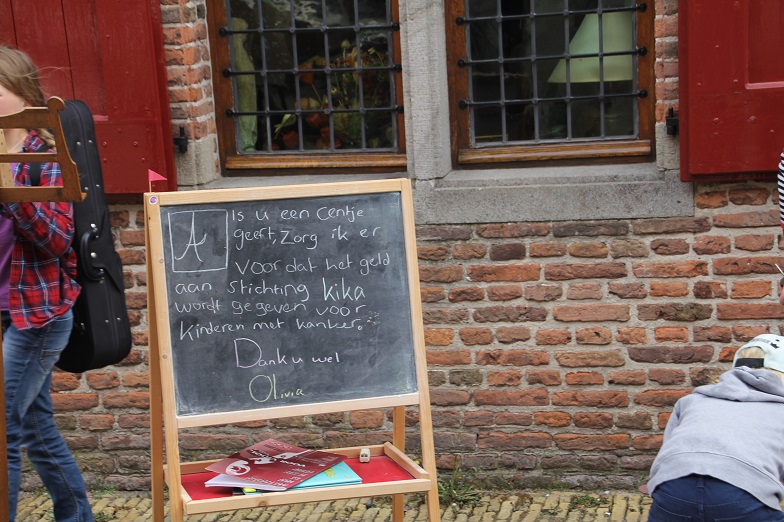 Als u een Centje
geeft, Zorg ik er
voor dat het geld
aan stichting kika
wordt gegeven voor
kinderen met kanker.
Dank u wel
Olivia